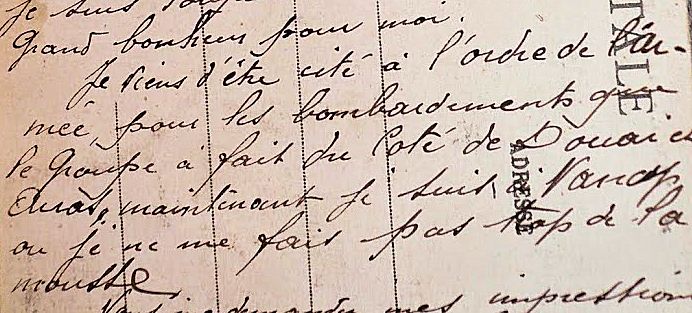 je suis
Grand bonheur pour moi.
Je viens d'être cité à l'ordre de l'ar-
mée, pour les bombardements que
le Groupe à fait du Coté de Douai et
maintenant je suis à Nancy
ou je ne me fais pas trop de la
mousse.
mes impressions
TALE
ADRESSE